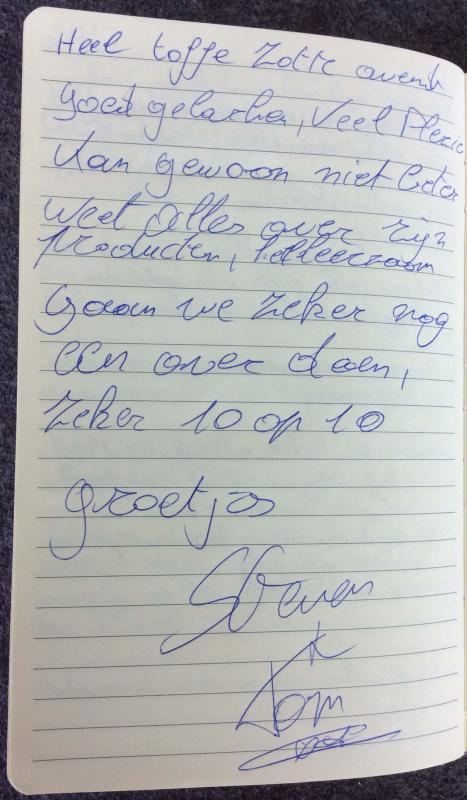 Heel toffe Zotte avond
goed gelachen, Veel Plezie
Kan gewoon niet beter
weet alles over zijn
producten,
Gaan we zeker nog
een over doen,
Zeker 10 op 10
groetjes
Steven
Tom